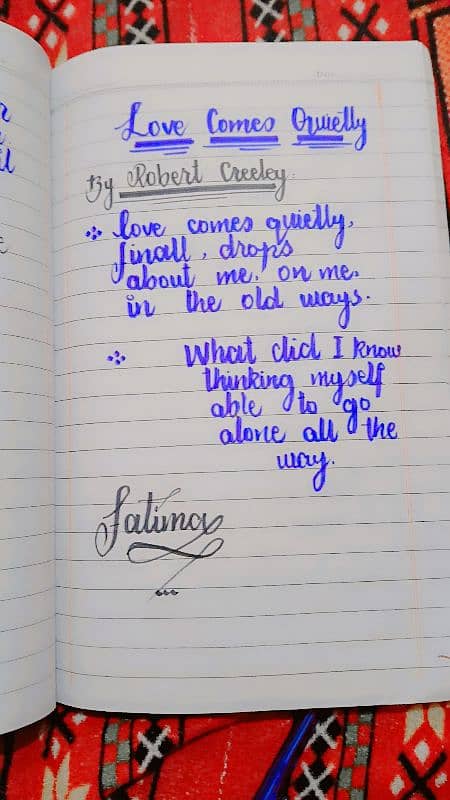 Love Comes Quietly
By Robert Creeley.
love comes quietly,
finall, drops
about me, on me,
in the old ways.
What did I know
thinking myself
able to go
alone all the
way.
Fatima